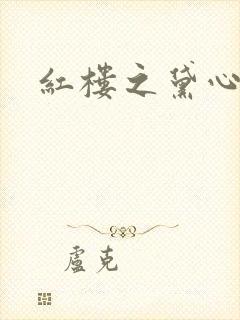 紅樓之黛心
盧克